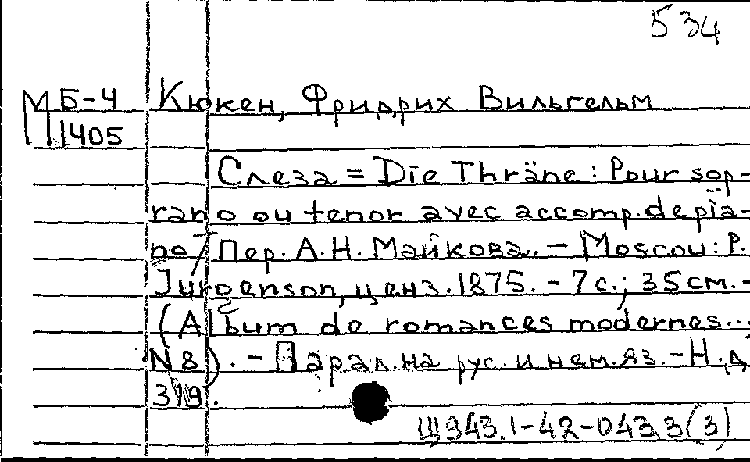 534
МБ-4 Кюкен, Фридрих Вильгельм
1405
Слеза = Die Thräne : Pour sop-
rano ou tenor avec accomp. de pia-
no / Пер. А.Н. Майкова. – Moscou : P.
Jurgenson, ценз. 1875. – 7 с. ; 35 см. –
(Album de romances modernes...;
N8). – Парал. на рус. и нем. яз. – Н.д.
319.
Щ943.1-42-043.3(3)